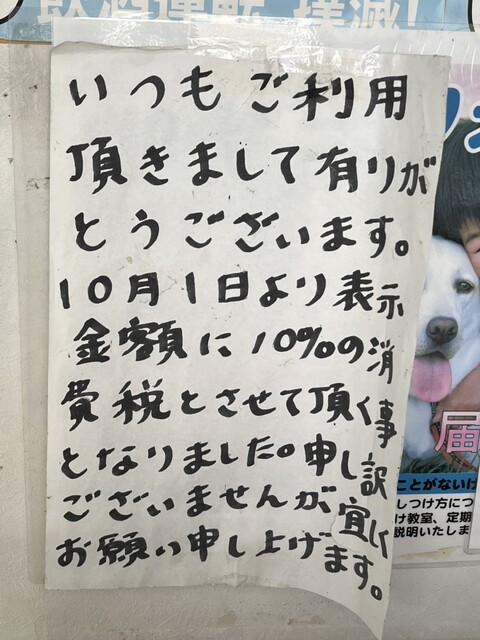 飲酒運転 撲滅!
いつもご利用
頂きまして有りが
とうございます。
10月1日より表示
金額に10%の消
費税とさせて頂く事
となりました。申し訳
ございませんが宜しく
お願い申し上げます。
届
ことがないけ
しつけ方につ
け教室、定期
説明いたしま